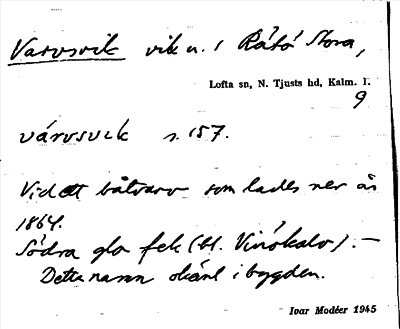 Varvsvik vik n. i Rátó Stora,
Lofta sn, N. Tjusts hd, Kalm. l.
9
várvsvik s. 157.
Vid ett båtvarv som lades ner år
1864.
Södra gla fek (bl. Vinökalv). —
Detta namn okänt i bygden.
Ivar Modéer 1945